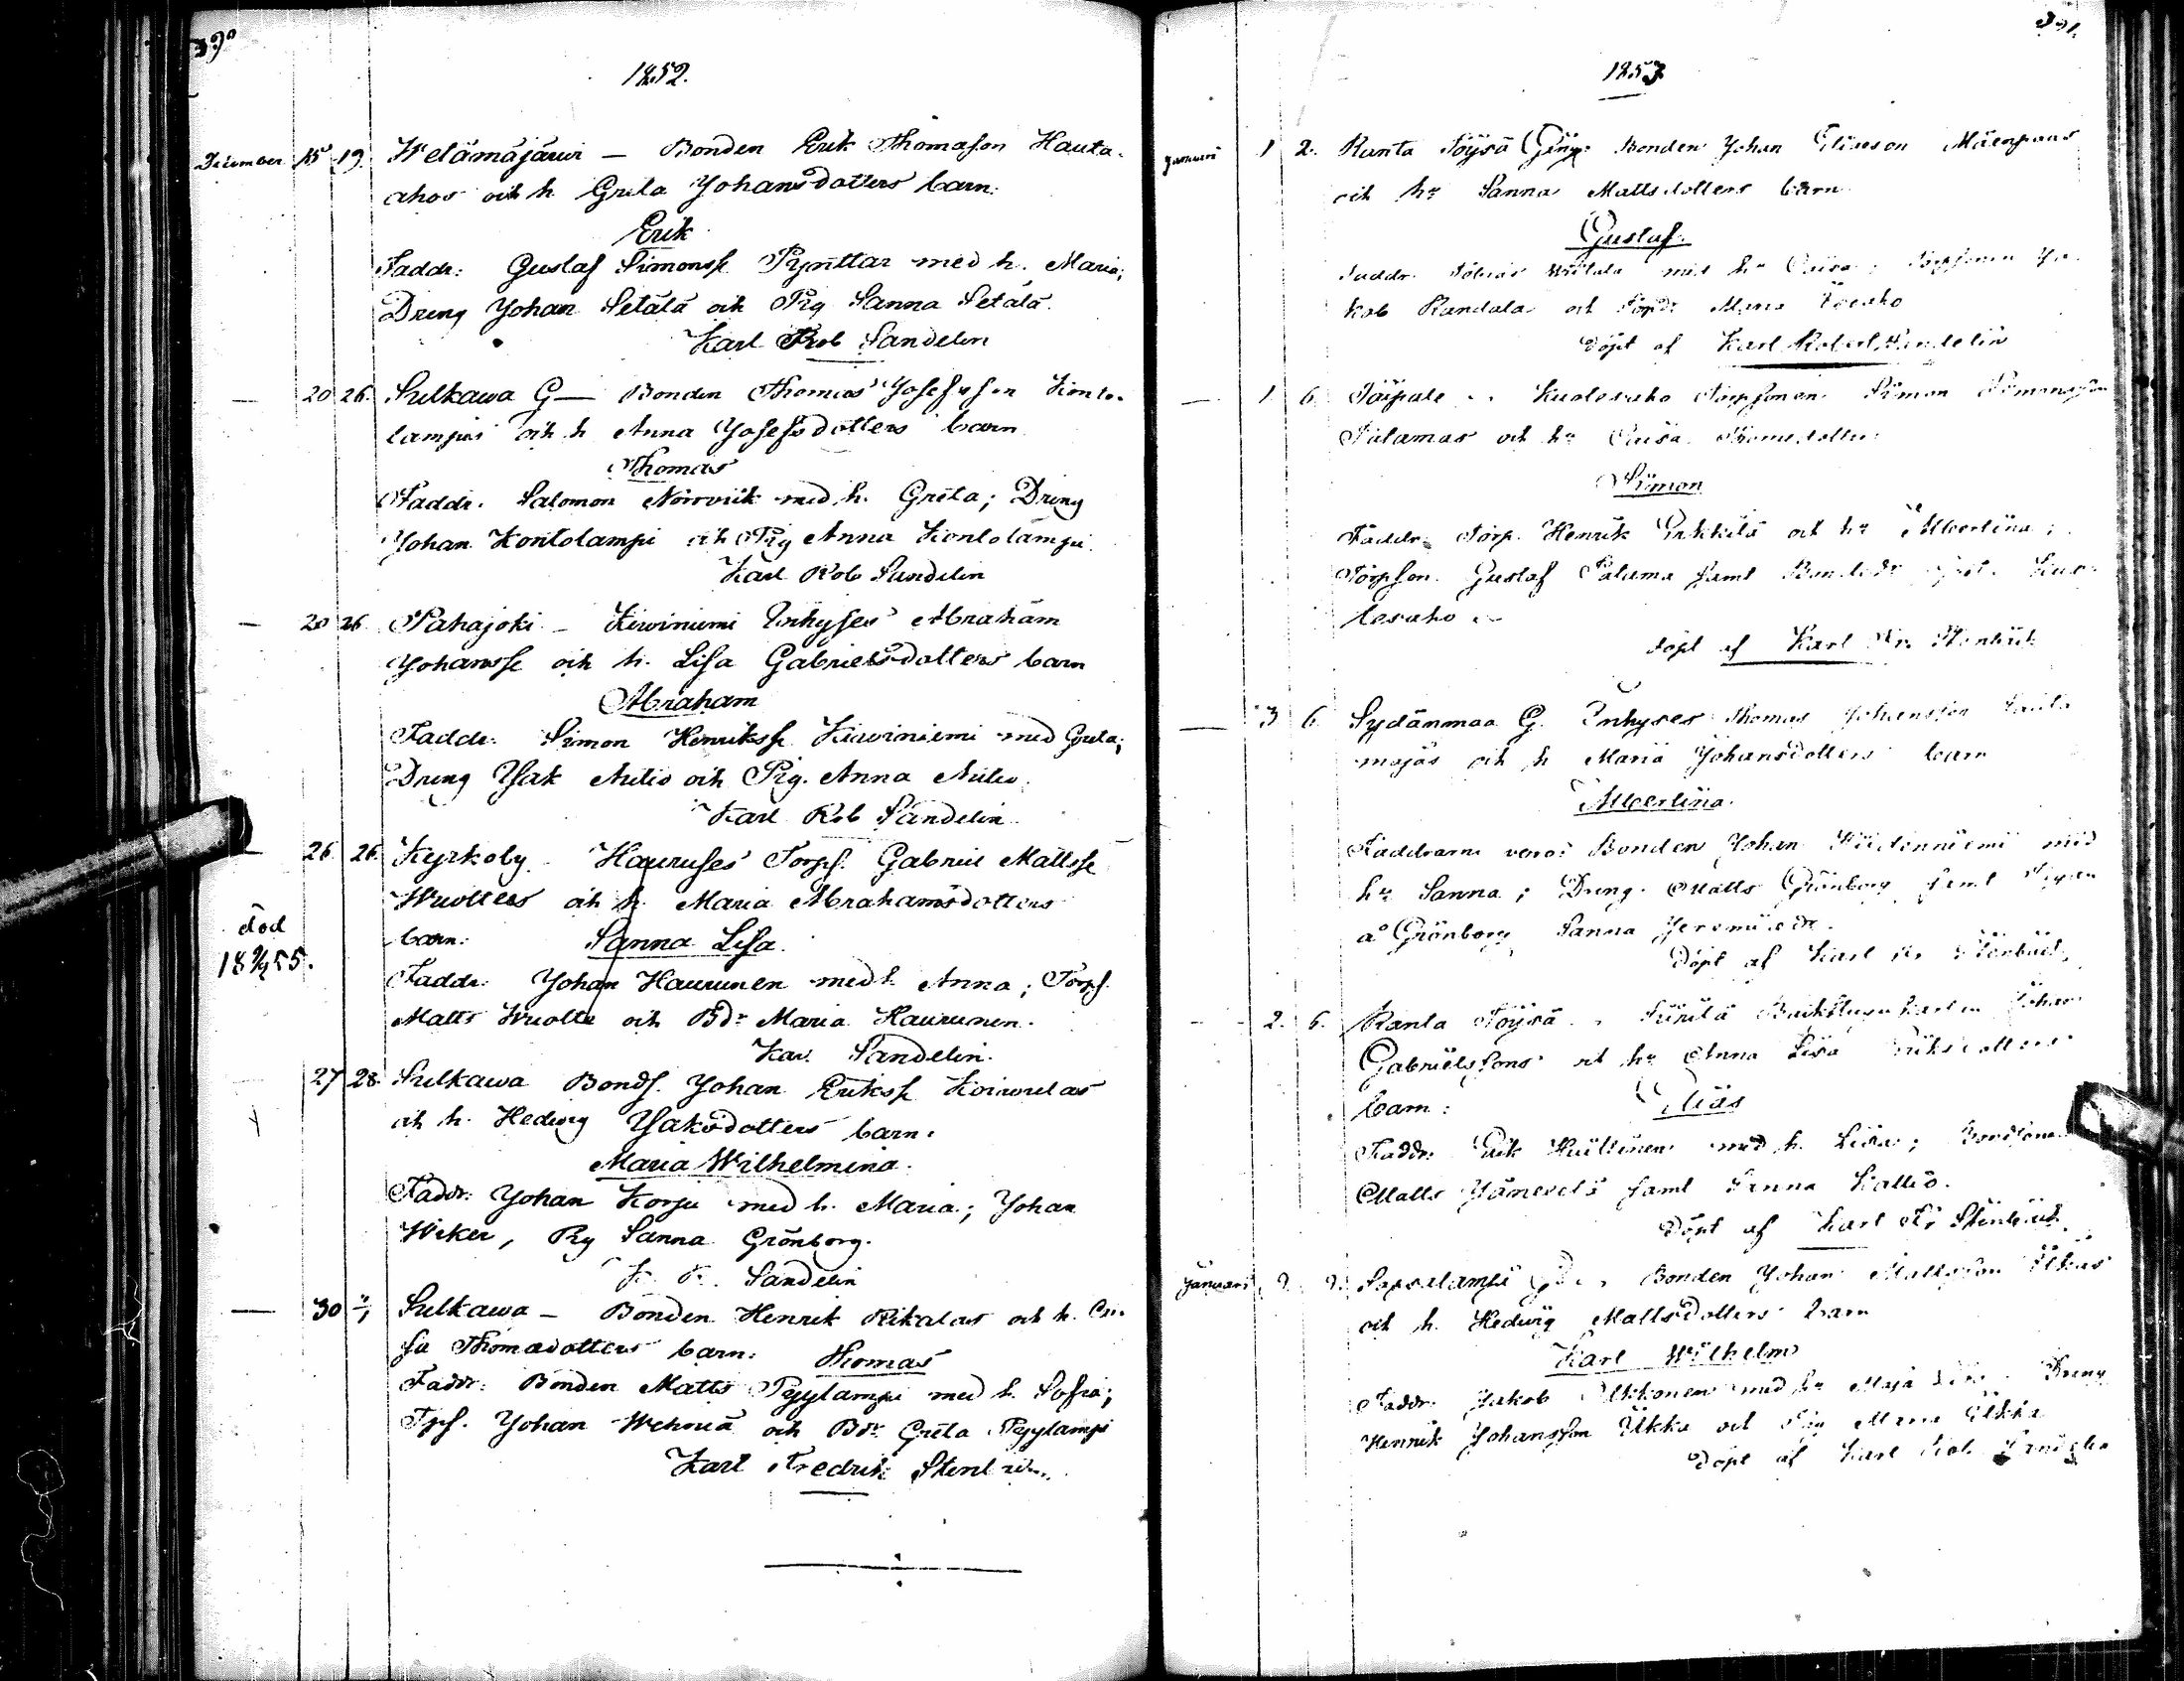 390
1852.
December 15 19. Wetämäjärwi — Bonden Erik Thomason Hauta-
ahos och h. Greta Johansdotters barn.
Erik
Faddr: Gustaf Simonss. Pynttar med h. Maria;
Dreng Johan Setälä och Pig Sanna Setälä.
Karl Rob Sandelin
— 20 26. Sulkawa G — Bonden Thomas Josefsson Konto-
lampis och h Anna Josefsdotters barn
Thomas
Faddr. Salomon Norrvik med h. Greta; Dreng
Johan Kontolampi och Pig Anna Kontolampi.
Karl Rob Sandelin
— 20 26 Pahajoki — Kiwiniemi Inhyses Abraham
Johanss. och h. Lisa Gabrielsdotters barn
Abraham
Faddr: Simon Henrikss. Kiwiniemi med Greta;
Dreng Isak Autio och Pig. Anna Autio.
Karl Rob Sandelin
— 26. 26. Kyrkoby. Hauruses Torps. Gabriel Mattss.
Wuolles och h. Maria Abrahamsdotters
barn: Sanna Lisa.
död
18 55.
Faddr: Johan Haurunen med h. Anna; Torps.
Matts Wuolle och Bdr Maria Haurunen.
Kar. Sandelin.
27 28. Sulkawa Bonds. Johan Erikss. Koiwulas
och h. Hedwig Isaksdotters barn.
Maria Wilhelmina.
Faddr: Johan Korpi med h. Maria; Johan
Wiker, Pig Sanna Grönborg.
K. R. Sandelin
— 30 Sulkawa — Bonden Henrik Rikalas och h. Cai-
sa Thomasdotters barn: Thomas
Faddr: Bonden Matts Pyylampi med h. Sofia;
Tps. Johan och Bdr Greta Pyylampi
Karl Fredrik Stenbäck.
391.
1853
Januari 1 2. Ranta Töysä Bonden Johan Eliasson Mäenpääs
och hu Sanna Mattsdotters barn
Gustaf.
Faddr. Tobias med hu Caisa; Torpsonen Ja-
kob Randala och Torpdr Maria
Döpt af Karl Robert Sandelin
— 1 6. Kuolesaho Torpsonen Simon Simonsson
Salamas och hu Caisa Thomasdotters
Simon
Faddr. Torp. Henrik och hu Albertina;
Torpson. Gustaf Salama samt Bondedr Kuo-
lesaho
döpt af Karl Fr. Stenbäck
— 3 6. Sydänmaa G. Inhyses Thomas Johansson
mäjas och h Maria Johansdotters barn
Albertina.
Faddrarne voro: Bonden Johan med
hu Sanna; Dreng. Matts Grönborg samt Pigan
å Grönborg Sanna Jeremiædr.
Döpt af Karl Fr Stenbäck.
2. 6. Ranta Töysä Backstugukarlen Johan
Gabrielssons och hu Anna Lisa Eriksdotters
barn: Elias
Faddr: Erik med h. Lisa; Bondsonen
Matts samt Sanna Kallio.
Döpt af Karl Fr Stenbäck.
Januari 2. 9. Sapsalampi Bonden Johan Mattsson Ukkas
och h. Hedwig Mattsdotters barn
Karl Wilhelm
Faddr. Jakob Ukkonen med hu Maja Lisa. Dreng
Henrik Johansson Ukka och Pig Maria Ukka
Döpt af Karl Rob Sandelin